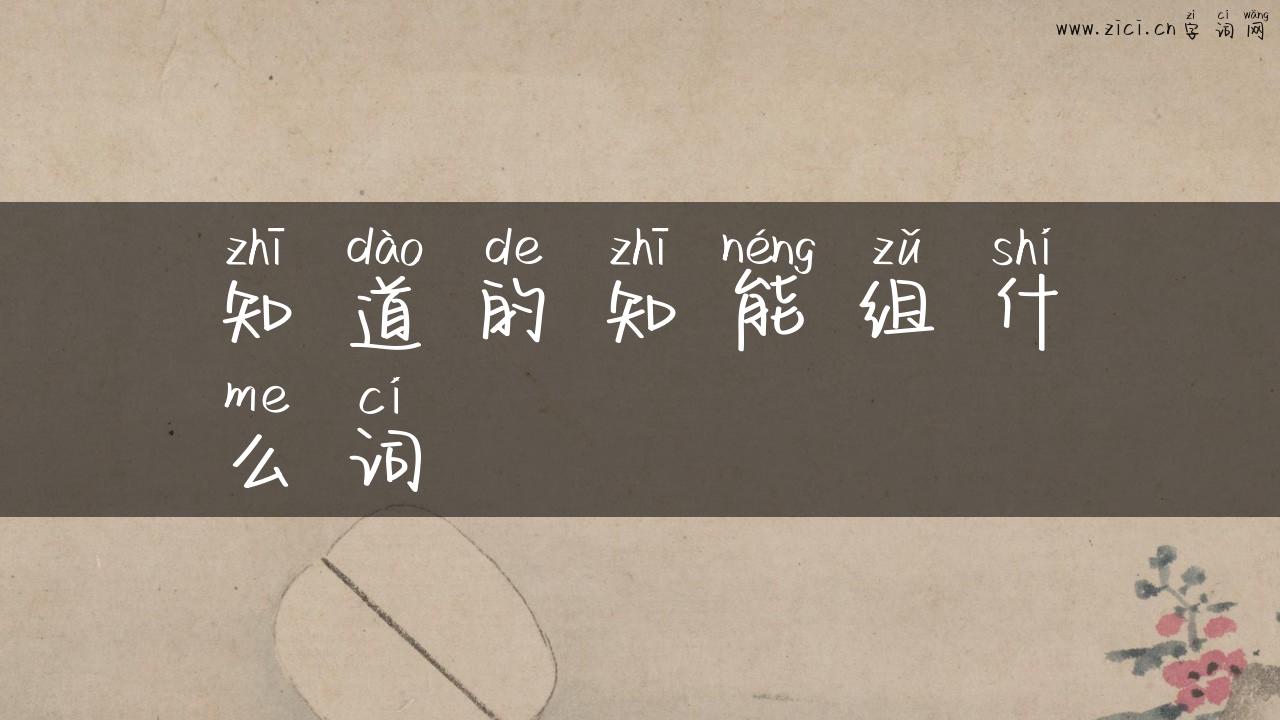 zì cí wǎng
www.zici.cn 字 词 网
zhī dào de zhī néng zǔ shí
知 道 的 知 能 组 什
me cí
么 词